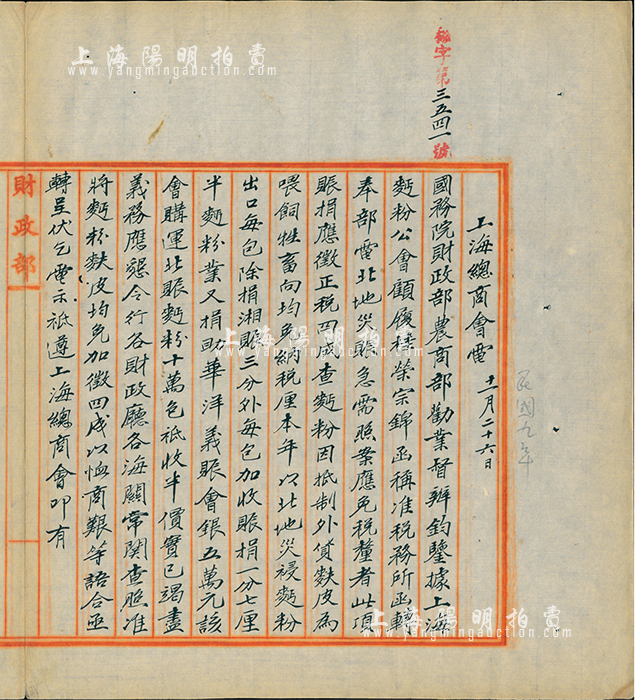 秘字第三五四一號
上海總商會電 十一月二十六日
民國九年
國務院財政部農商部勸業督辦鈞鑒據上海
麵粉公會顧履桂榮宗錦函稱准稅務所函轉
奉部電北地災賑急需照案應免稅釐者此項
賑捐應徵正稅四成查麵粉因抵制外貨麩皮為
喂飼牲畜向均免納稅厘本年以北地災祲麵粉
出口每包除捐湘賑三分外每包加收賑捐一分七厘
半麵粉業又捐助華洋義賑會銀五萬元該
會購運北賑麵粉十萬包祗收半價實已竭盡
義務應懇令行各財政廳各海關常關查照准
將麵粉麩皮均免加徵四成以恤商艱等語合亟
轉呈伏乞電示祗遵上海總商會叩有
財政部
上海陽明拍賣
www.yangmingauction.com
上海陽明拍賣
www.yangmingauction.com
上海陽明拍賣
www.yangmingauction.com